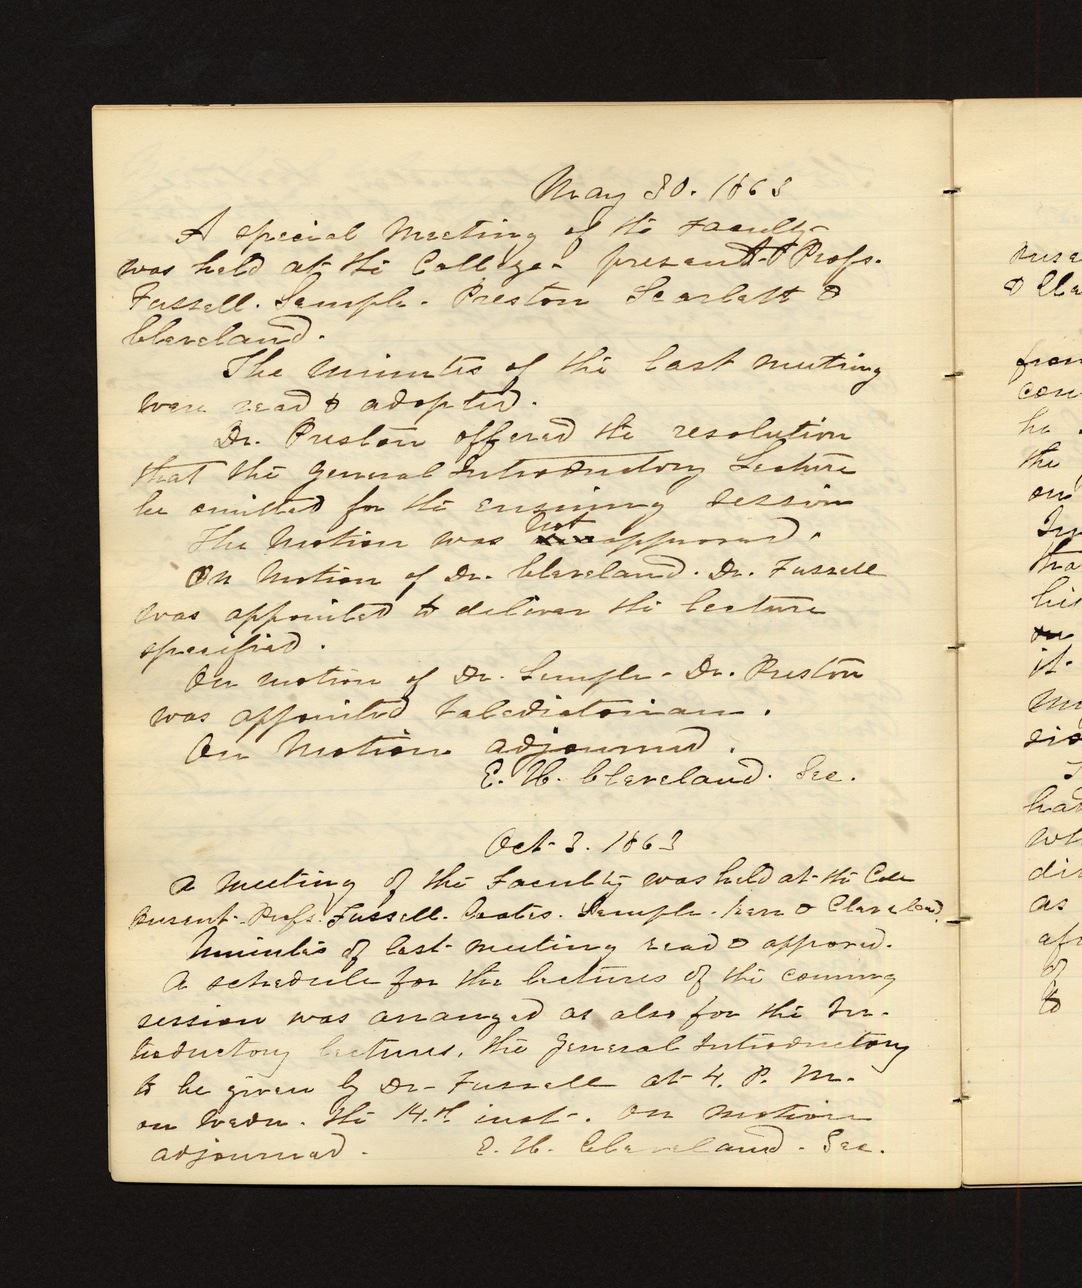 May 30. 1863
A special Meeting of the Faculty
was held at the College - present Profs.
Fussell. Semple. Preston Scarlett &
Cleveland.
The minutes of the last meeting
were read & adopted.
Dr. Preston offered the resolution
that the General Introductory Lecture
be omitted for the ensuing session
The Motion was not approved.
On Motion of Dr. Cleveland. Dr. Fussell
was appointed to deliver the lecture
specified.
On motion of Dr. Semple - Dr. Preston
was appointed Valedictorian.
On Motion adjourned.
E. H. Cleveland. Sec.
Oct. 3. 1863
A Meeting of the Faculty was held at the Coll
present. Profs. Fussell. Coates. Semple. & Cleveland.
Minutes of last meeting read & approved.
A schedule for the lectures of the coming
session was arranged as also for the In-
troductory lectures, the General Introductory
to be given by Dr. Fussell at 4. P. M.
on Wedn. the 14.th inst. On motion
adjourned. E. H. Cleveland. Sec.
&
from
he
the
on
his
it.
as
of
to